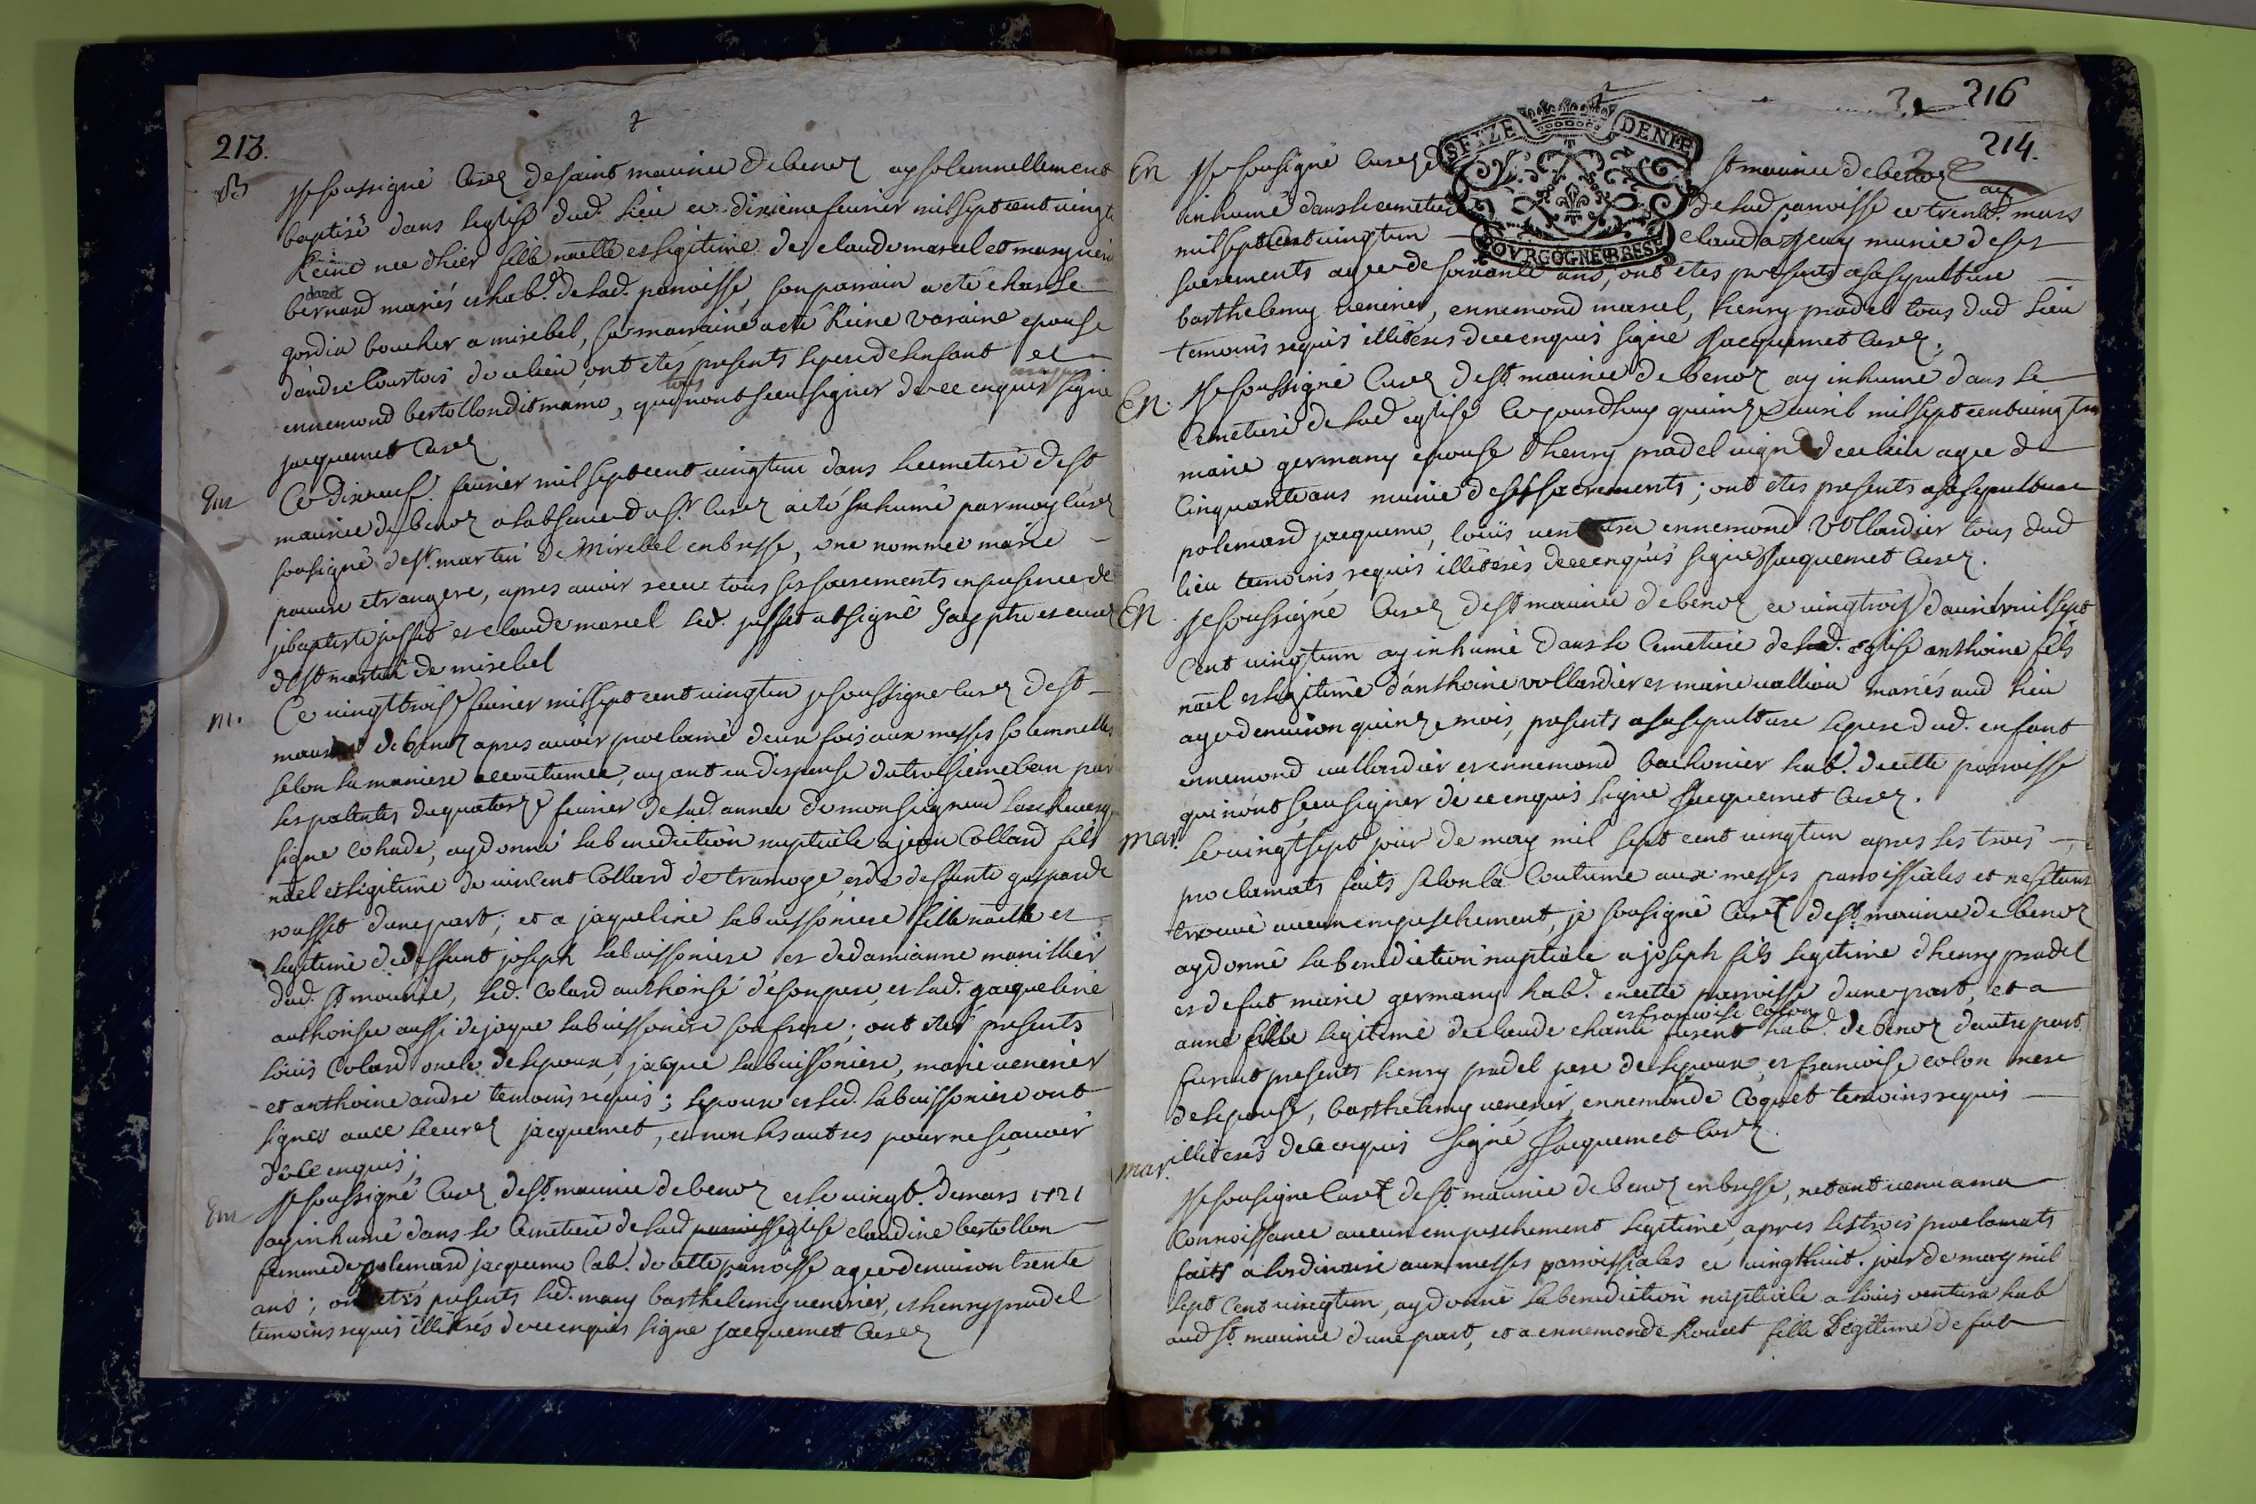 213.
2
B
Je soussigné Curez de saint maurice de benoz ay solemnellement
baptisé dans leglise dud. lieu ce dixieme feurier mil sept cent vingt
Reine nee dhier fille naelle et legitime de claude marcel et marguerite
bernard mariés et hab. de lad. paroisse, son parrain a eté charle
gordia boucher a mirebel, sa marraine a eté Reine varaine epouse
dandré Courtois de ce lieu, ont etés presents le pere de lenfant et
ennemond bertollon dit mamo, qui nont sceu signer de ce enquis signé
jacquemet Curez
Em
Ce dixneuf. feurier mil sept cent vingt un dans le cemetiere de st
maurice de benoz a labsence du sr. Curez a eté inhumé par moy Curé
sousigné de st. martin de Mirebel en bresse, une nommee marie
pauure etrangere, apres auoir receu tous ses sacrements en presence de
jebaptiste josset et claude marcel led. josset a signé
de st martin de mirebel
m.
Ce vingt trois feurier mil sept cent vingt un je soussigné Curez de st
maurice de benoz apres auoir proclamé deux fois aux messes solemnelles
selon la maniere accoutumee, ayant eu dispense du troisieme ban par
les patentes du quatorze feurier de lad. annee de monseigneur larcheuesq
signé cohade, ay donné la benediction nuptiale a jean Collard fils
nael et legitime de vincent Collard de tramoye et de deffunte gasparde
rosset dune part; et a jaqueline labuissoniere fille naelle et
legitime de deffunt joseph labuissoniere et de damianne manillier
dud. St maurice, led. Colard authorisé de son pere, et lad. jacqueline
authorisee aussi de jaque labuissoniere son frere; ont etés presents
Louis Colard oncle de lepoux, jacque labuissoniere, marie venerier
et anthoine andre temoins requis; lepoux et led. labuissoniere ont
signés auec le curez jacquemet, et non les autres pour ne sçauoir
de ce enquis;
Em
Je soussigné Curez de St maurice de benoz et le vingt. de mars 1721
ay inhumé dans le Cemetiere de lad paroiss eglise claudine bertollon
femme de polemard jacqueme hab. de cette paroisse agee denuiron trente
ans; ont etés presents led. mary barthelemy venerier, et henry pradel
temoins requis illiterés de ce enquis signé jacquemet Curez
216
214.
En
Je soussigné Curez de St maurice de benoz ay
SEIZE DENIE
BOVRGOGNE BRESSE
inhumé dans le cemetiere de lad paroisse ce trente. mars
mil sept Cent vingt un clauda jeay munie de ses
sacrements agee de soixante ans, ont etes presents a sa sepulture
barthelemy venerier, ennemond marcel, henry pradel tous dud lieu
temoins requis illiterés de ce enquis signé Jacquemet Curez.
En.
Je soussigné Curez de St. maurice de benoz ay inhumé dans le
Cemetiere de lad eglise ce jourdhuy quinze auril mil sept cent vingt un
marie germany epouse dhenry pradel vign de ce lieu agee de
Cinquante ans munie de ses sacrements; ont etes presents a sa sepulture
polemard jacqueme, louis ventura ennemond Vollardier tous dud
lieu temoins requis illiterés de ce enquis signé Jacquemet Curez.
En
Je soussigné Curez de St maurice de benoz ce vingt trois dauril mil sept
Cent vingt un ay inhumé dans le Cemetiere de lad. eglise anthoine fils
nael et legitime danthoine vollardier et marie vallion mariés aud lieu
agé denuiron quinze mois, presents a sa sepulture le pere dud. enfant
ennemond vollardier et ennemond bachonier hab. de cette paroisse
qui nont sceu signer de ce enquis signé Jacquemet Curez.
mar.
Le vingt sept jour de may mil sept cent vingt un apres les trois
proclamats faits selon la Coutume aux messes paroissiales et ne setant
trouué aucun empeschement, je sousigné Curez de St. maurice de benoz
ay donné la benediction nuptiale a joseph fils legitime dhenry pradel
et de fut marie germany hab. en cette paroisse dune part, et a
et francoise Colon
anne fille legitime de claude chana furent hab. de benoz dautre part.
furent presents henry pradel pere de lepoux, et francoise colon mere
de lepouse, barthelemy venerier, ennemonde Coquet temoins requis
illiterés de ce enquis signé Jacquemet Curez.
mar.
Je sousigné Curez de St. maurice de benoz en bresse, netant venu a ma
Connoissance aucun empeschement legitime, apres les trois proclamats
faits a lordinaire aux messes paroissiales ce vingt huit. jour de may mil
sept Cent vingt un, ay donné la benediction nuptiale a louis ventura hab
aud St. maurice dune part, et a ennemonde Roucet fille legitime de fut